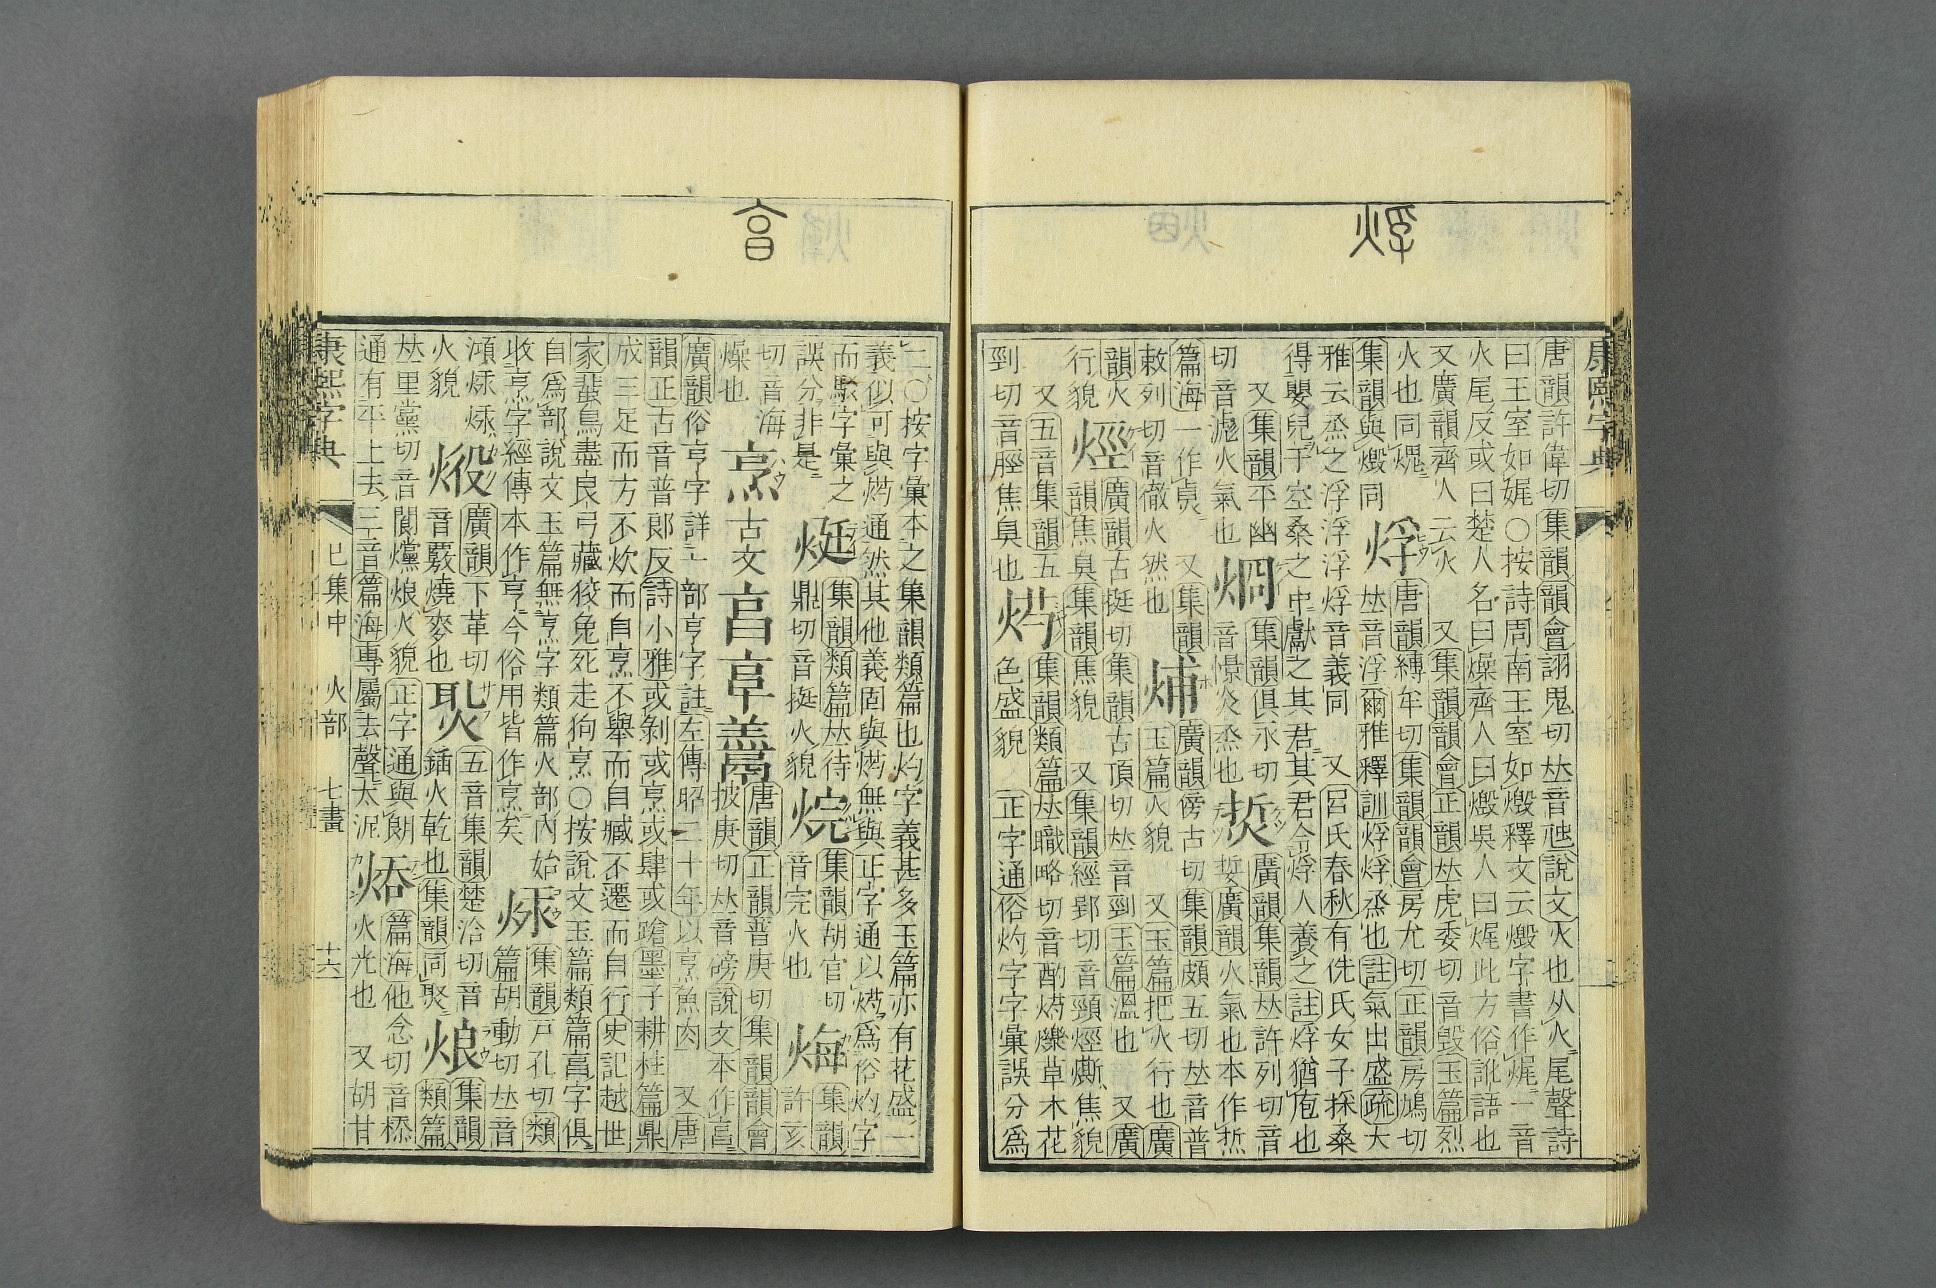 烰
康熙字典
唐韻許偉切集韻韻會詡鬼切𠀤音虺說文火也从火尾聲詩
曰王室如娓〇按詩周南王室如燬釋文云燬字書作㷄一音
火尾反或曰楚人名曰燥齊人曰燬吳人曰㷄此方俗訛語也
又廣韻齊人云火　又集韻韻會正韻𠀤虎委切音毀玉篇烈
火也同㷄　烰　唐韻縛牟切集韻韻會房尤切正韻房鳩切
集韻與燬同　𠀤音浮爾雅釋訓烰烰烝也註氣出盛疏大
雅云烝之浮浮浮浮烰音義同　又呂氏春秋有侁氏女子採桑
得嬰兒于空桑之中獻之其君其君令烰人養之註烰猶庖也
又集韻平幽　焵　集韻俱永切　焎　廣韻集韻𠀤許列切音
切音滮火氣也　音憬炎烝也　娎廣韻火氣也本作焎
篇海一作　又集韻　烳　廣韻傍古切集韻頗五切𠀤音普
敕列切音徹火然也　玉篇火貌　又玉篇把火行也廣
韻火　烴　廣韻古挺切集韻古頂切𠀤音剄玉篇溫也　又廣
行貌　韻焦臭集韻焦貌　又集韻經郢切音頸烴㷕焦貌
又五音集韻五　焫　集韻類篇𠀤職略切音酌焫爍草木花
剄切音脛焦臭也　色盛貌　正字通俗灼字字彙誤分為
亯
二〇按字彙本之集韻類篇也灼字義甚多玉篇亦有花盛一
義似可與焫通然其他義固與焫無與正字通以焫為俗灼字
而駁字彙之　烶　集韻類篇𠀤待　烷　集韻胡官切　烸　集韻
誤分非是　鼎切音挺火貌　音完火也　許亥
切音海　烹　古文亯亭䰞　唐韻正韻普庚切集韻韻會
燥也　披庚切𠀤音磅說文本作亯
廣韻俗亨字詳亠部亨字註左傳昭二十年以亨魚肉　又唐
韻正古音普郎反詩小雅或剝或烹或肆或蹌墨子耕柱篇鼎
成三足而方不炊而自烹不舉而自臧不遷而自行史記越世
家蜚鳥盡良弓藏狡兔死走狗烹〇按說文玉篇類篇亯字俱
自為部說文玉篇無烹字類篇火部內始　㶹　集韻戸孔切類
收烹字經傳本作亨今俗用皆作烹矣　篇胡動切𠀤音
澒㶹㶹　焈　廣韻下革切　焣　五音集韻楚洽切音　烺　集韻
火貌　音覈燒麥也　鍤火乾也集韻同焣　類篇
𠀤里黨切音閬爣烺火貌正字通與朗　㶺　篇海他念切音㮇
通有平上去三音篇海專屬去聲太泥　火光也　又胡甘
康熙字典　巳集中　火部　七畫　十六